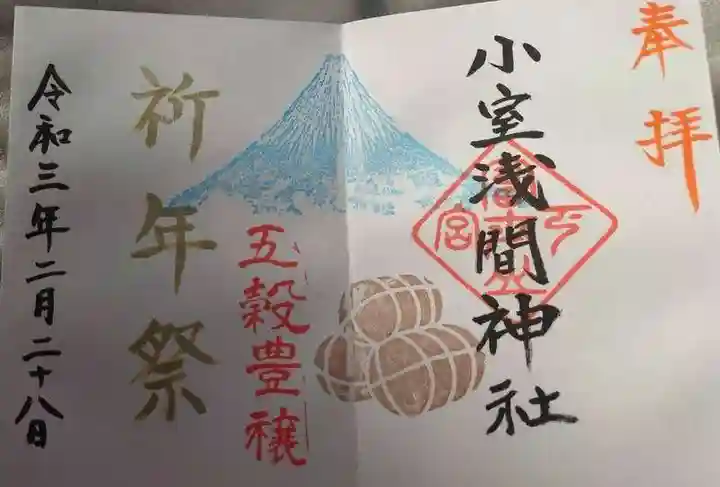 奉拝
小室浅間神社
下宮
五穀豊穣
祈年祭
令和三年二月二十八日